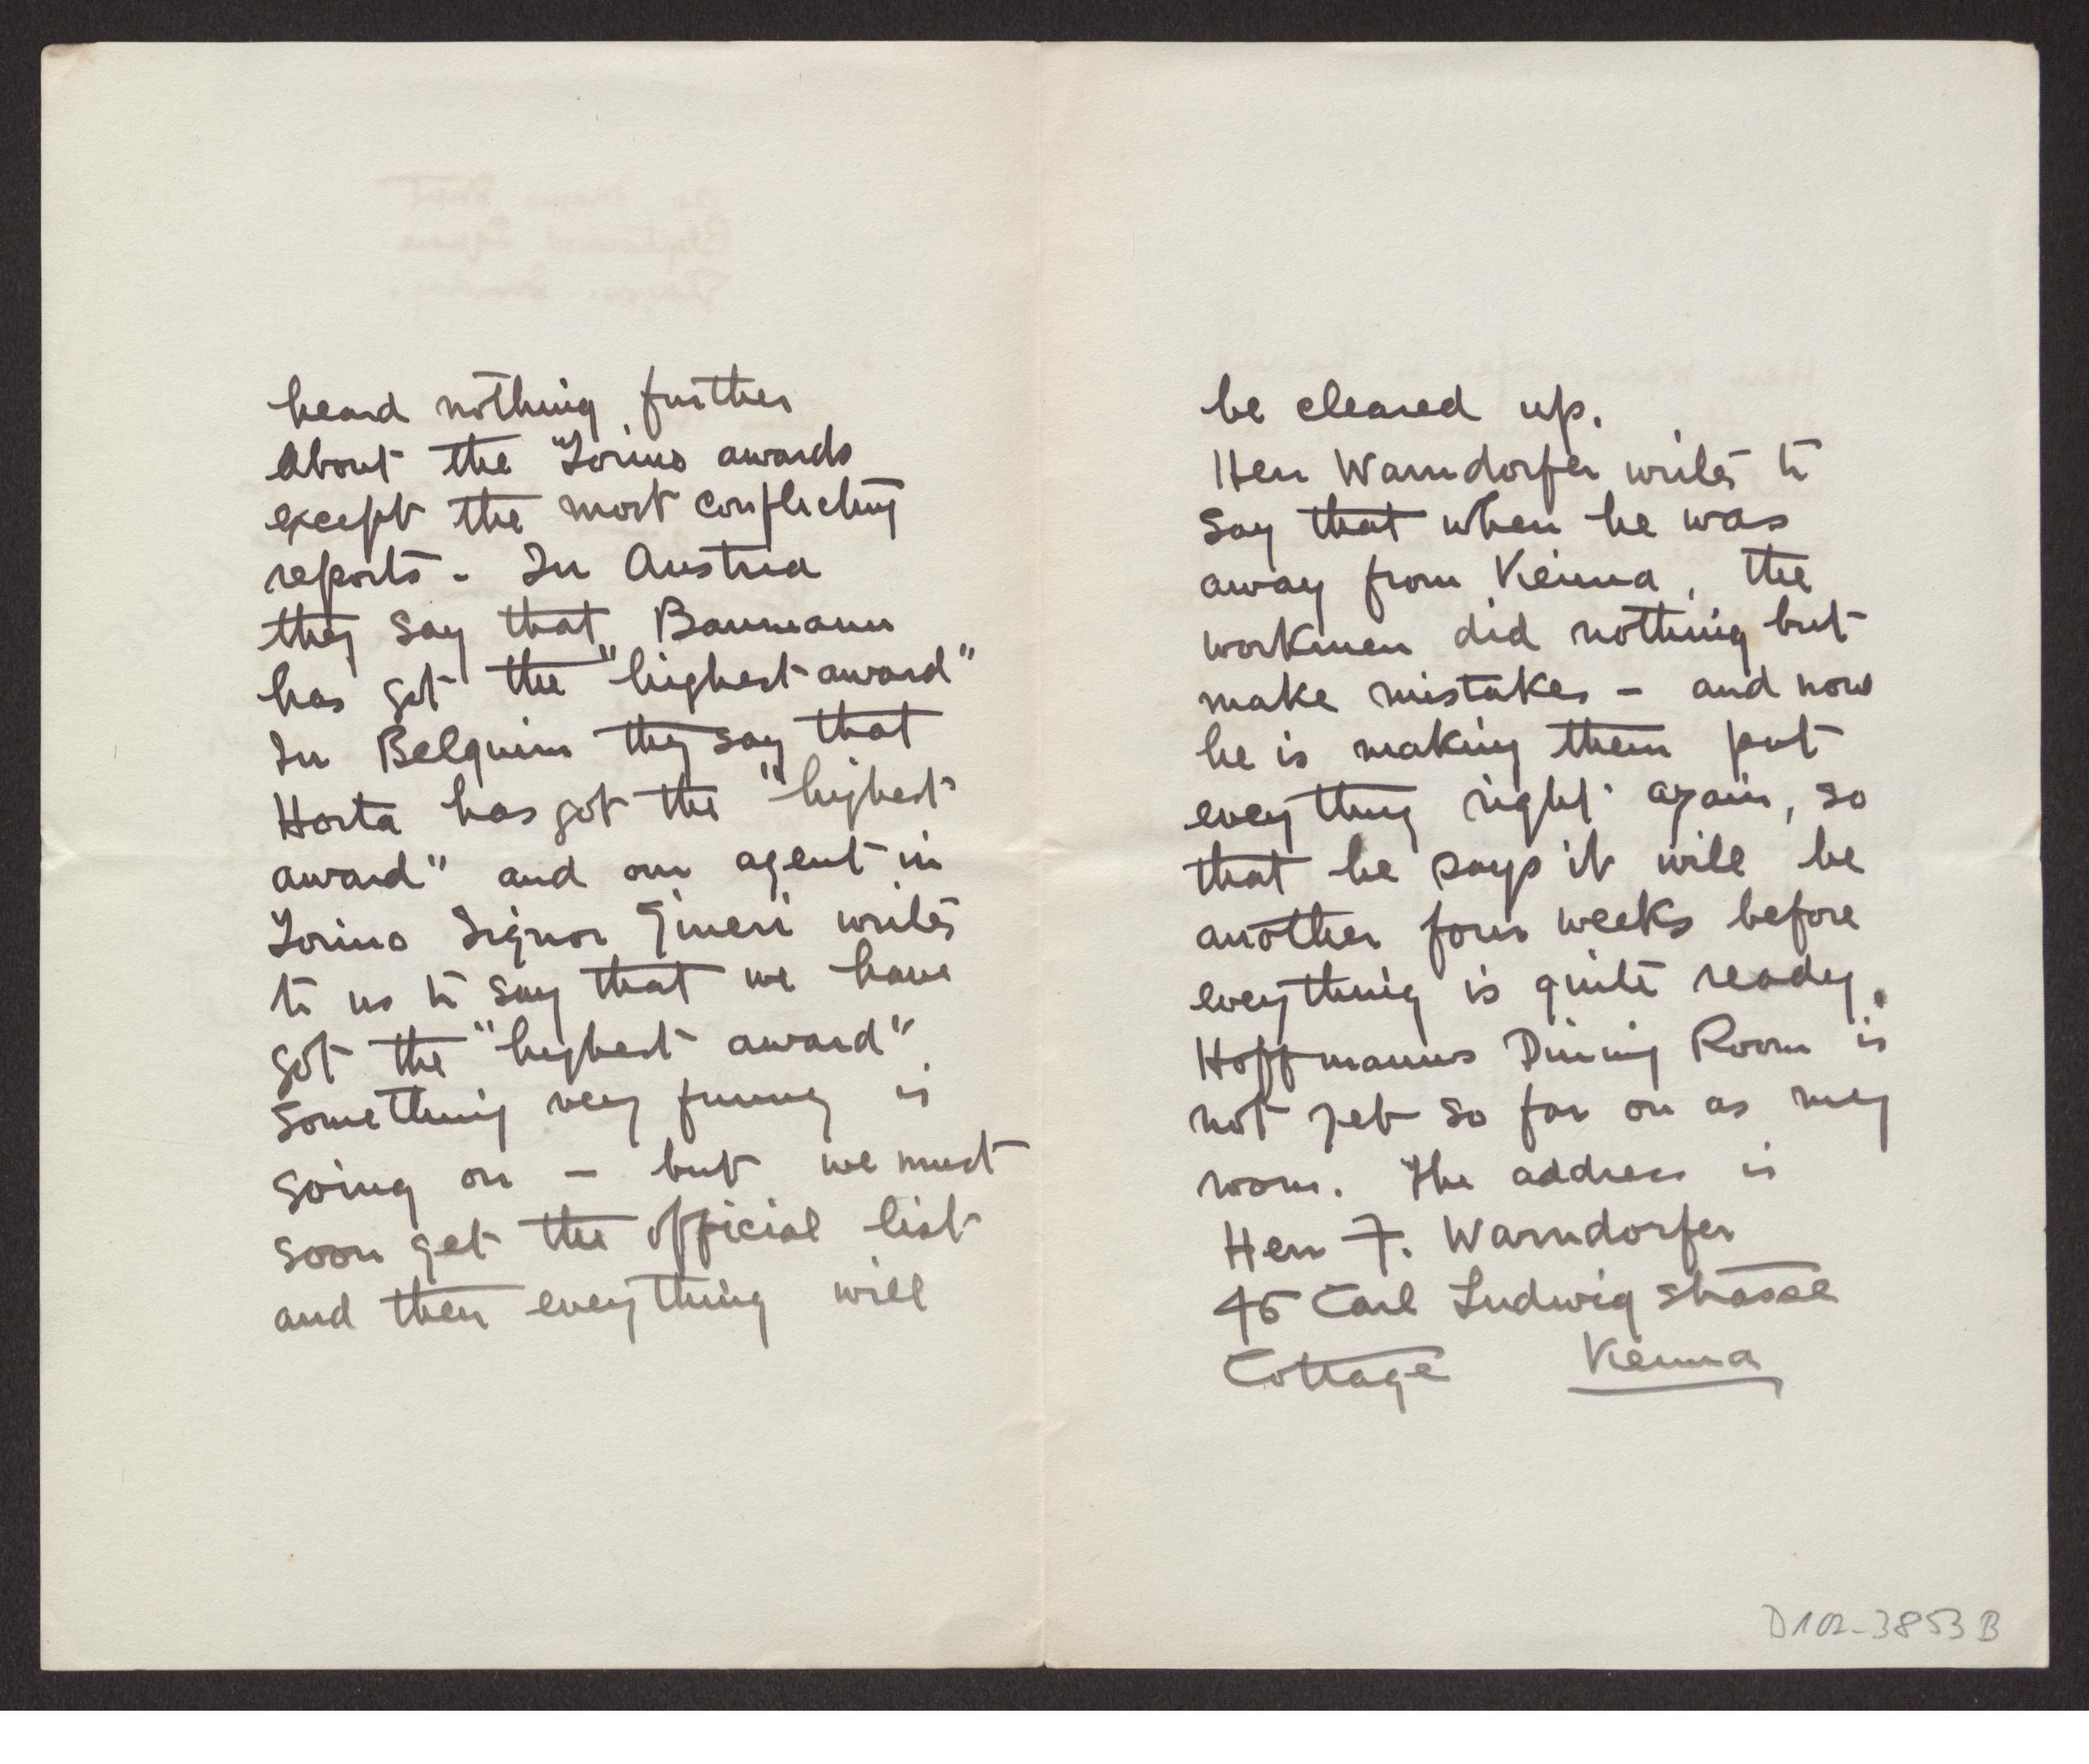 heard nothing further
about the Torino awards
except the most conflicting
reports. In Austria
they say that Baumann
has got the "highest award"
In Belguim they say that
Horta has got the "highest
award" and our agent in
Torino Signor Gineri writes
to us to say that we have
got the "highest award".
Something very funny is
going on – but we must
soon get the official list
and then everything will
be cleared up.
Herr Warndorfer writes to
say that when he was
away from Vienna, the
workmen did nothing but
make mistakes – and now
he is making them put
everything right again, so
that he says it will be
another four weeks before
everything is quite ready.
Hoffmanns Dining Room is
not yet so far on as my
room. The address is
Herr F. Warndorfer
45 Carl Ludwig strasse
Cottage Vienna
D102-3853 B